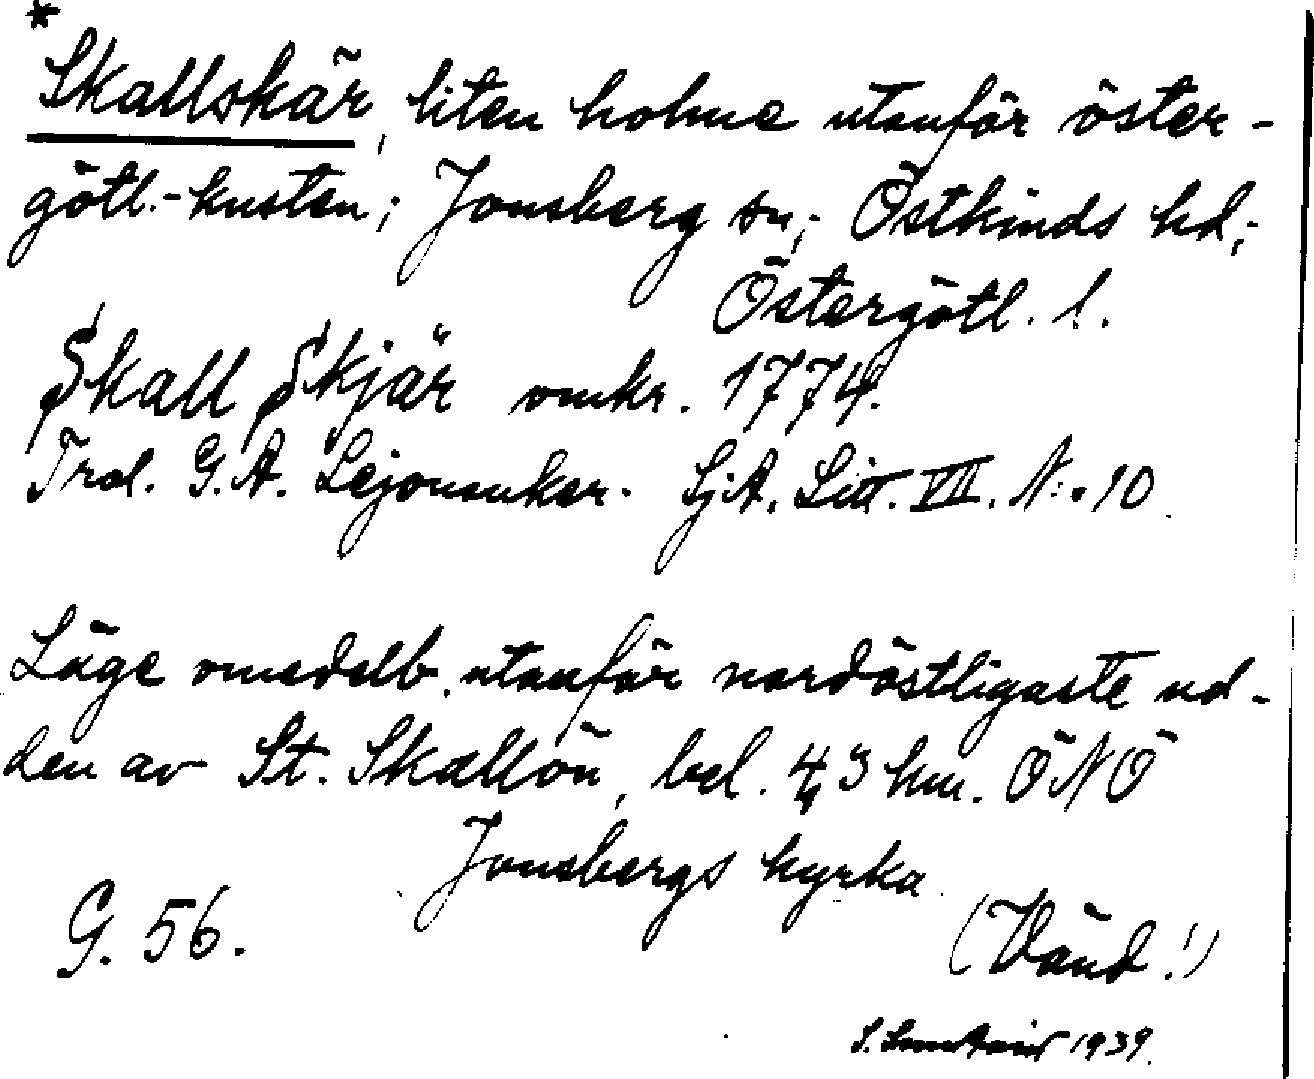 *
Skallskär, liten holme utanför öster-
götl.-kusten; Jonsberg sn; Östkinds hd;
Östergötl. l.
Skall Skjär omkr. 1774.
Trol. G. A. Lejonanker. SjA. Litt. VII. N:o 10
Läge omedelb. utanför nordöstligaste ud-
den av St. Skallön, bel. 4,3 km. ÖNÖ
Jonsbergs kyrka
G. 56.
(Vänd!)
S. 1939.